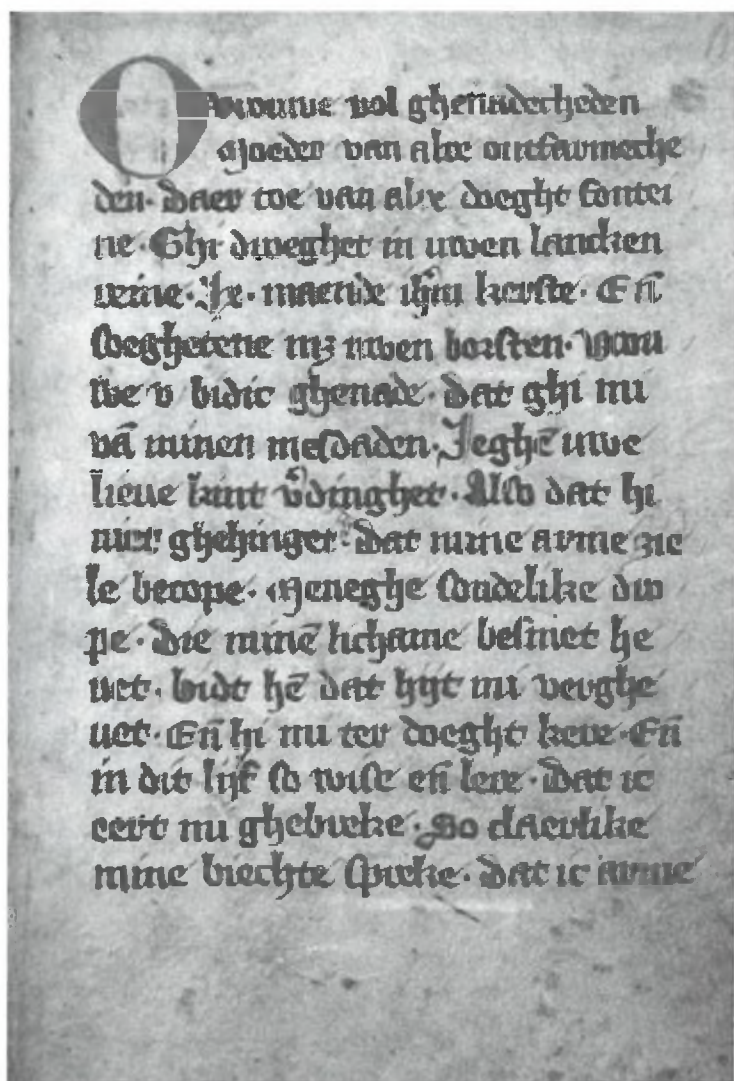 O vrouwe vol ghenadecheden
Moeder van alre ontfarmeche
den· Daer toe van alre doeght fontei
ne· Ghi droeghet in uwen lancken
reine· Je· maende ihm kerste· En̄
soeghetene mz uwen borsten· Vrou
we v bidic ghenade· Dat ghi mi
vā minen mesdaden· Jeghē uwe
lieue kint v̄dinghet· Also dat hi
niet ghehinget· Dat mine arme zie
le becope· Meneghe sondelike dro
pe· Die minē lichame besmet he
uet· bidt hē dat hijt mi verghe
uet· En̄ hi mi ter doeght kere· En̄
in dit lijf so wise en̄ lere· Dat ic
eert mi ghebreke· So claerlike
mine biechte spreke· Dat ic arme